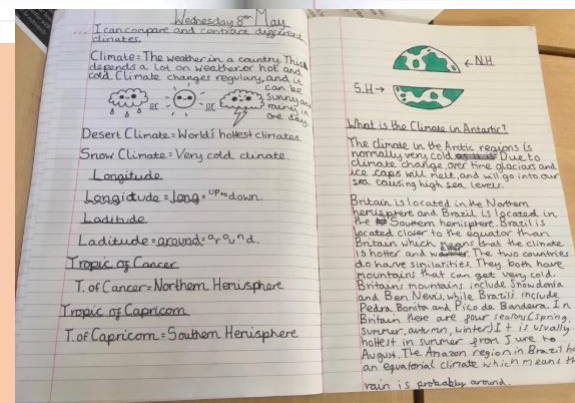 Wednesday 8th May
I can compare and contract different
climates.
Climate = The weather in a country. This
depends a lot on weather or hot and
cold. Climate changes regulary, and it
can be
sunny and
rainy in
one day.
or or
Desert Climate = World's hottest climates
Snow Climate = Very cold climate.
Longitude
Longitude = long = up to down.
Laditude
Laditude = around = around.
Tropic of Cancer
T. of Cancer = Northern Hemisphere
Tropic of Capricorn
T. of Capricorn = Southern Hemisphere
N.H
S.H
What is the Climate in Antartic?
The climate in the Arctic regions is
normally very cold Due to
climate change, over time glaciars and
ice caps will melt, and will go into our
sea causing high sea levels.
Britain is located in the Northern
hemisphere and Brazil is located in
the Southern hemisphere. Brazil is
located closer to the equator than
Britain which means that the climate
is hotter and The two countries
do have similarities. They both have
mountains that can get very cold.
Britains mountains include Snowdonia
and Ben Nevis, while Brazils include
Pedra Bonita and Pico de Bandeira. In
Britain there are four seasons (spring,
summer, autumn, winter) It is usually
hottest in summer from June to
August. The Amazon region in Brazil
an equatorial climate which means
rain is probably around.